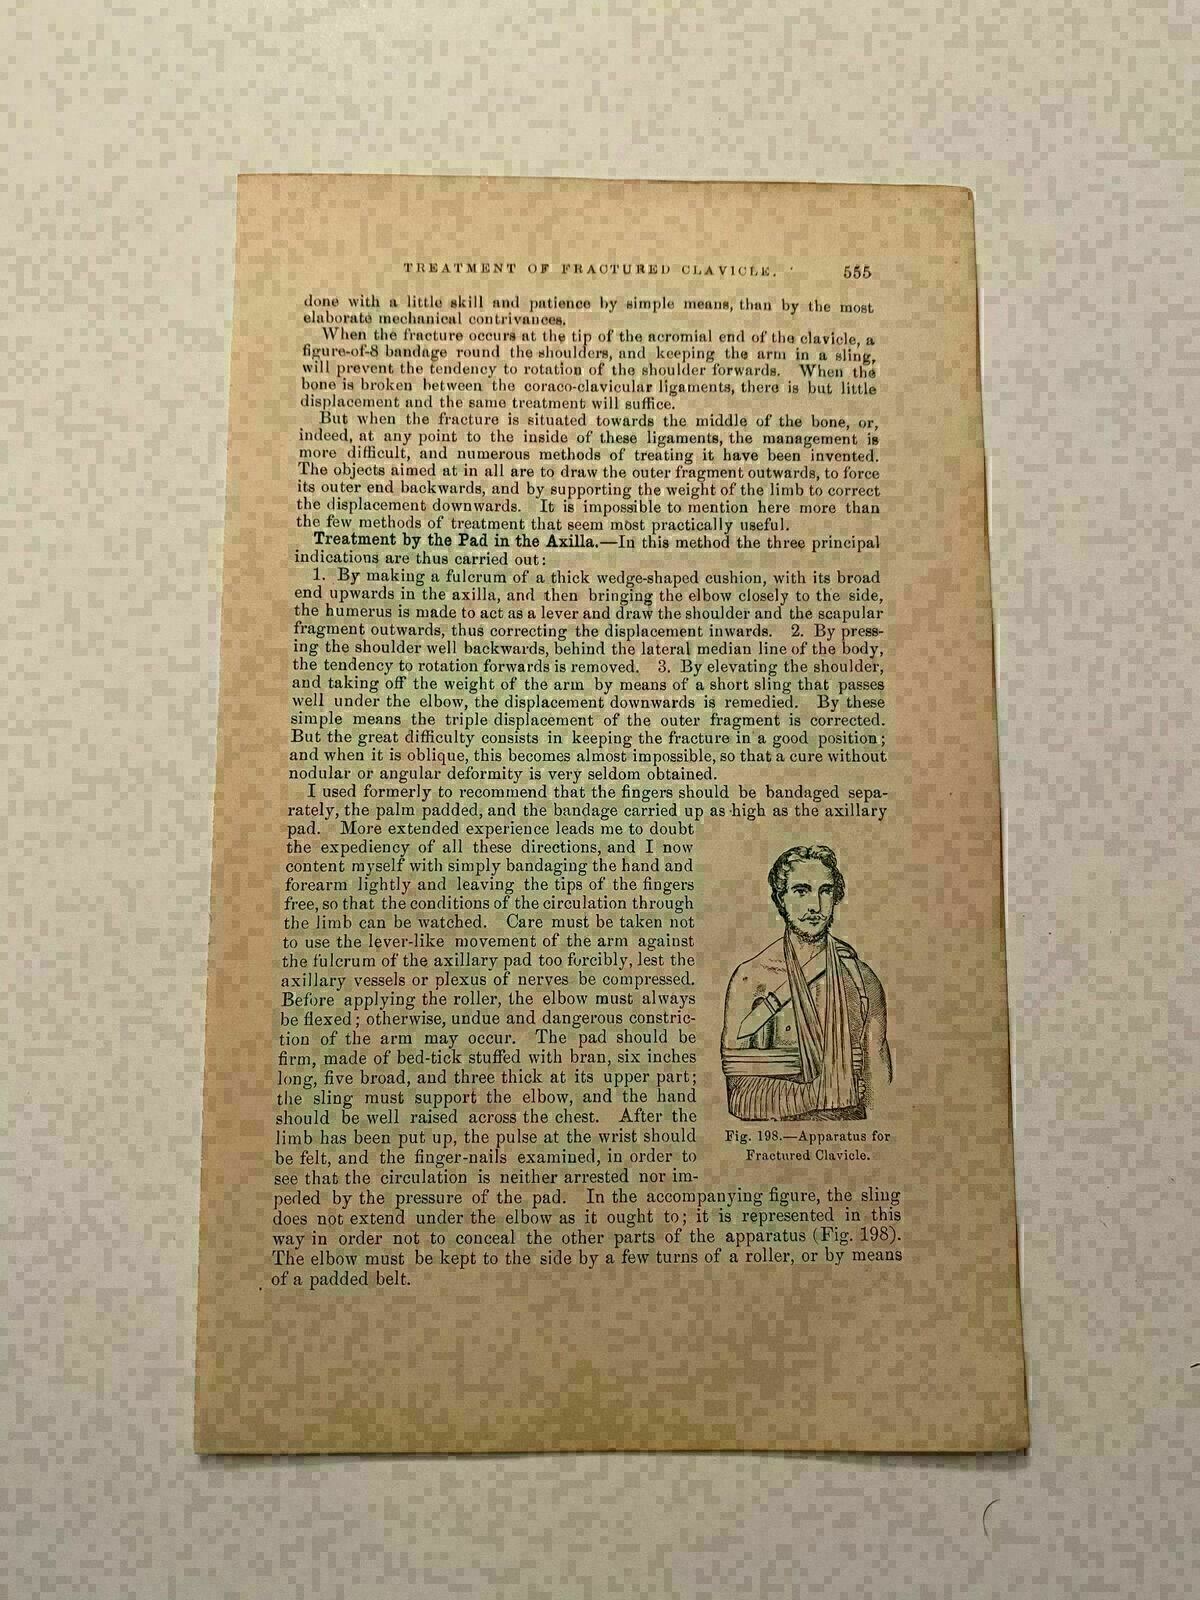 TREATMENT OF FRACTURED CLAVICLE. 555
done with a little skill and patience by simple means, than by the most
elaborate mechanical contrivances.
When the fracture occurs at the tip of the acromial end of the clavicle, a
figure-of-8 bandage round the shoulders, and keeping the arm in a sling,
will prevent the tendency to rotation of the shoulder forwards. When the
bone is broken between the coraco-clavicular ligaments, there is but little
displacement and the same treatment will suffice.
But when the fracture is situated towards the middle of the bone, or,
indeed, at any point to the inside of these ligaments, the management is
more difficult, and numerous methods of treating it have been invented.
The objects aimed at in all are to draw the outer fragment outwards, to force
its outer end backwards, and by supporting the weight of the limb to correct
the displacement downwards. It is impossible to mention here more than
the few methods of treatment that seem most practically useful.
Treatment by the Pad in the Axilla.—In this method the three principal
indications are thus carried out:
1. By making a fulcrum of a thick wedge-shaped cushion, with its broad
end upwards in the axilla, and then bringing the elbow closely to the side,
the humerus is made to act as a lever and draw the shoulder and the scapular
fragment outwards, thus correcting the displacement inwards. 2. By press-
ing the shoulder well backwards, behind the lateral median line of the body,
the tendency to rotation forwards is removed. 3. By elevating the shoulder,
and taking off the weight of the arm by means of a short sling that passes
well under the elbow, the displacement downwards is remedied. By these
simple means the triple displacement of the outer fragment is corrected.
But the great difficulty consists in keeping the fracture in a good position;
and when it is oblique, this becomes almost impossible, so that a cure without
nodular or angular deformity is very seldom obtained.
I used formerly to recommend that the fingers should be bandaged sepa-
rately, the palm padded, and the bandage carried up as high as the axillary
pad. More extended experience leads me to doubt
the expediency of all these directions, and I now
content myself with simply bandaging the hand and
forearm lightly and leaving the tips of the fingers
free, so that the conditions of the circulation through
the limb can be watched. Care must be taken not
to use the lever-like movement of the arm against
the fulcrum of the axillary pad too forcibly, lest the
axillary vessels or plexus of nerves be compressed.
Before applying the roller, the elbow must always
be flexed; otherwise, undue and dangerous constric-
tion of the arm may occur. The pad should be
firm, made of bed-tick stuffed with bran, six inches
long, five broad, and three thick at its upper part;
the sling must support the elbow, and the hand
should be well raised across the chest. After the
limb has been put up, the pulse at the wrist should
be felt, and the finger-nails examined, in order to
see that the circulation is neither arrested nor im-
peded by the pressure of the pad. In the accompanying figure, the sling
does not extend under the elbow as it ought to; it is represented in this
way in order not to conceal the other parts of the apparatus (Fig. 198).
The elbow must be kept to the side by a few turns of a roller, or by means
of a padded belt.
Fig. 198.—Apparatus for
Fractured Clavicle.